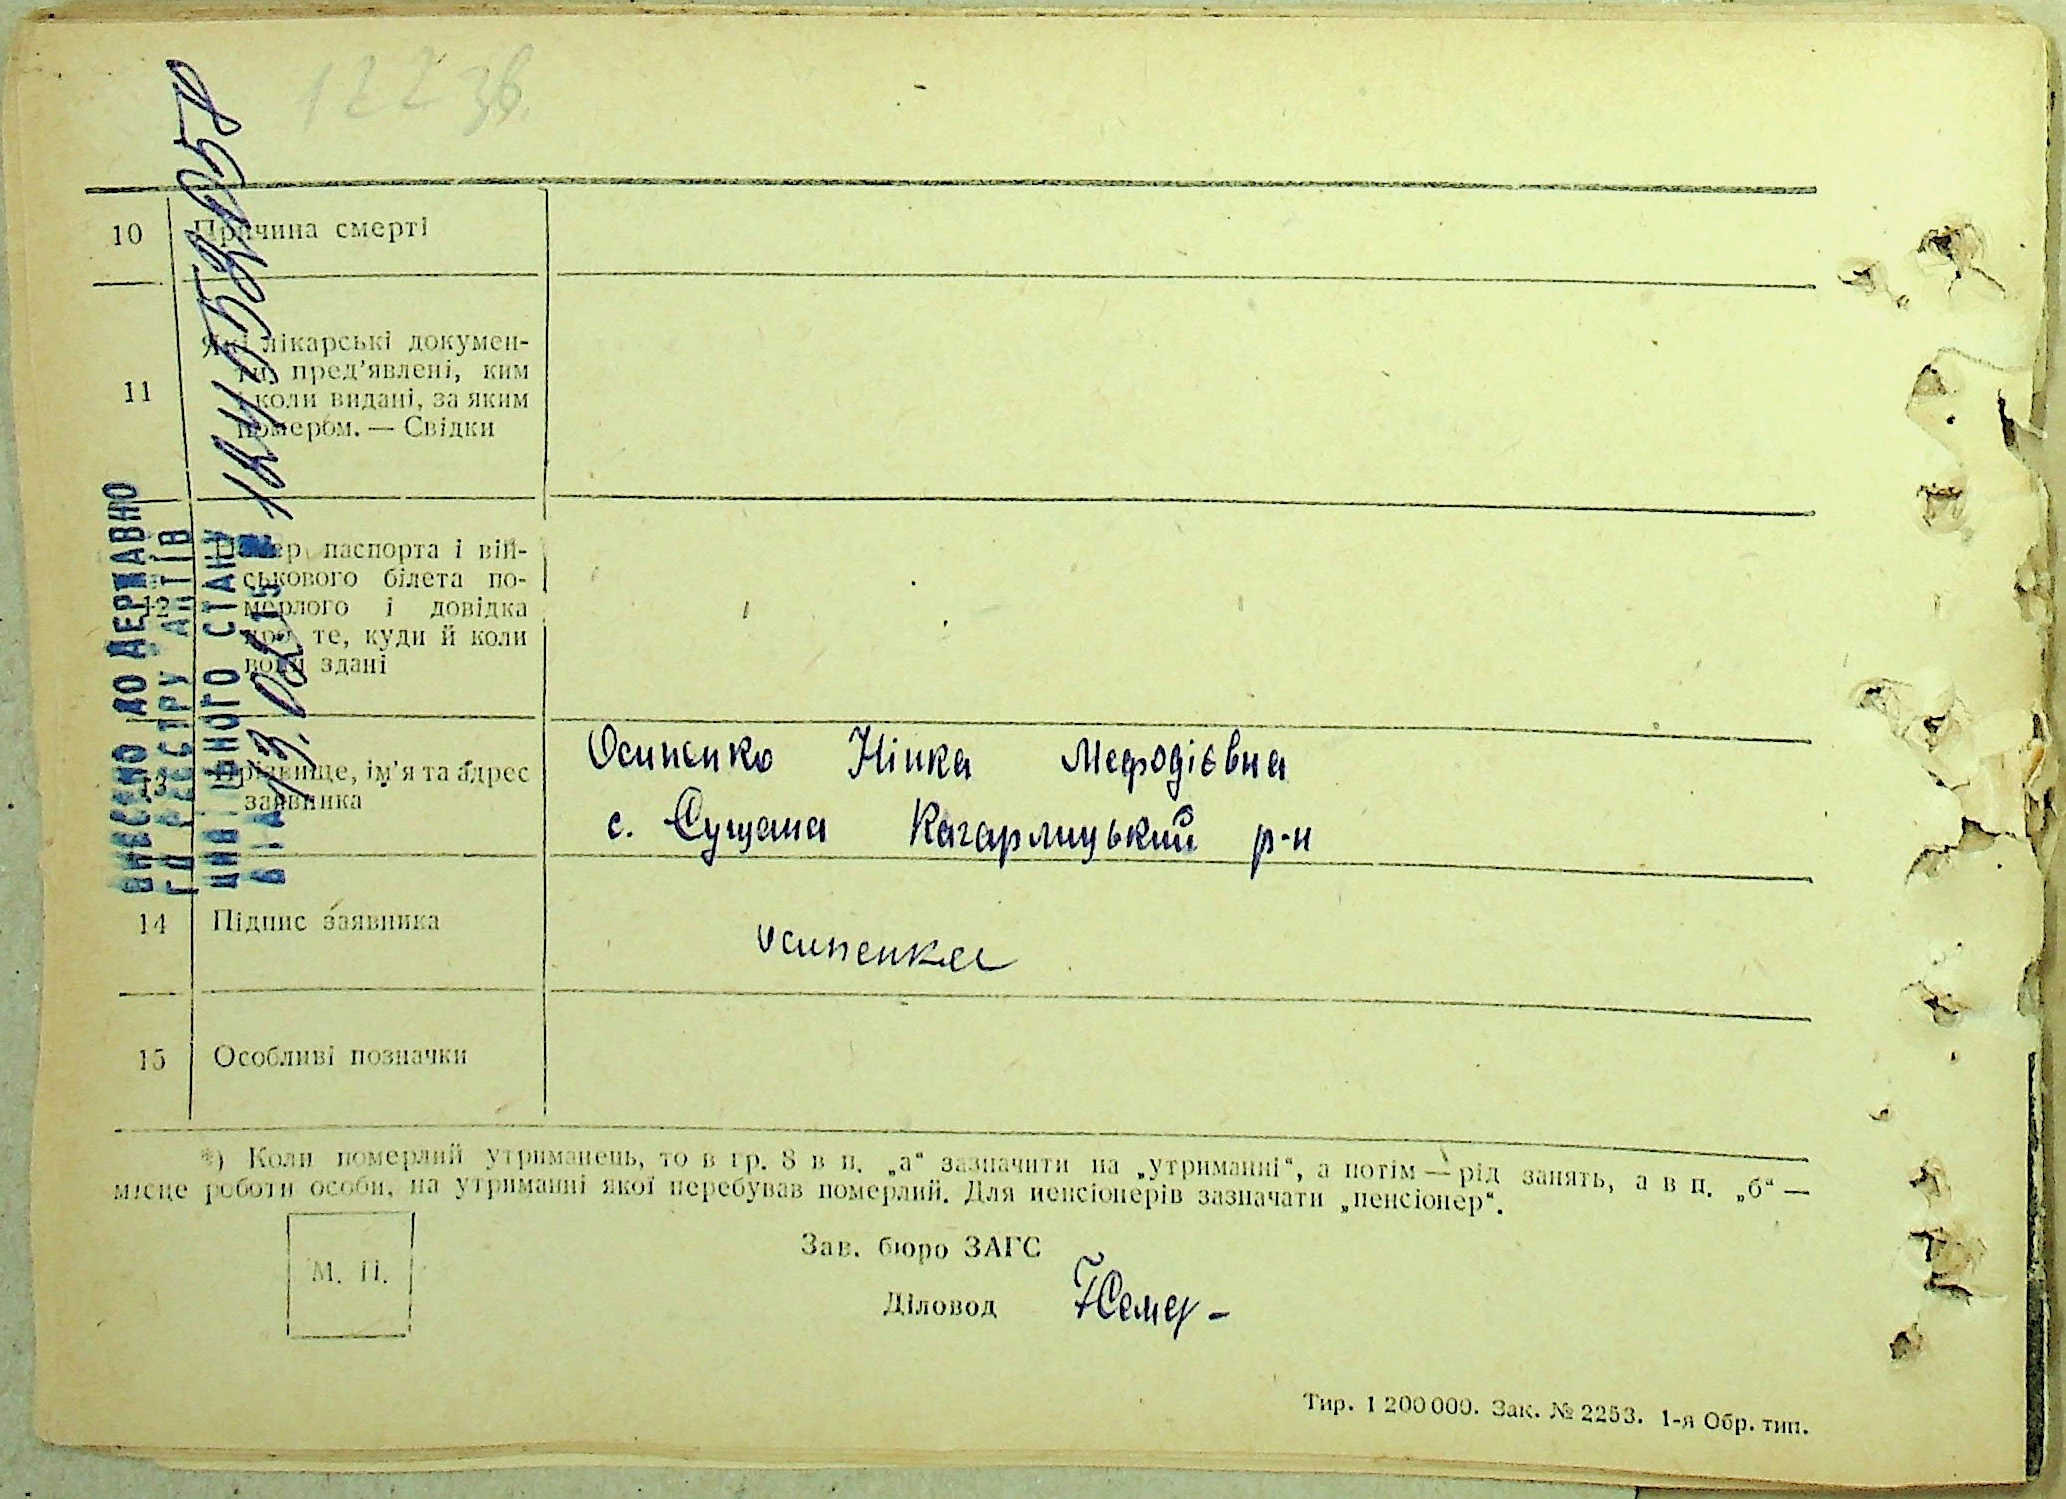 122 зв.
10 Причина смерті
11 Які лікарські докумен-
ти пред'явлені, ким
і коли видані, за яким
номером. — Свідки
12 Номер паспорта і вій-
ськового білета по-
мерлого і довідка
про те, куди й коли
вони здані
13 Прізвище, ім'я та адрес
заявника
Осипенко Нінка Мефодієвна
с. Сущана Кагарлицький р-н
14 Підпис заявника
осипенка
15 Особливі позначки
*) Коли померлий утриманець, то в гр. 8 в п. „а“ зазначити на „утриманні“, а потім — рід занять, а в п. „б“ —
місце роботи особи, на утриманні якої перебував померлий. Для пенсіонерів зазначати „пенсіонер“.
М. П.
Зав. бюро ЗАГС
Діловод
Тир. 1 200 000. Зак. № 2253. 1-я Обр. тип.
ВНЕСЕНО ДО ДЕРЖАВНО
ГО РЕЄСТРУ АКТІВ
ЦИВІЛЬНОГО СТАНУ
ВІД 13.02.15 №